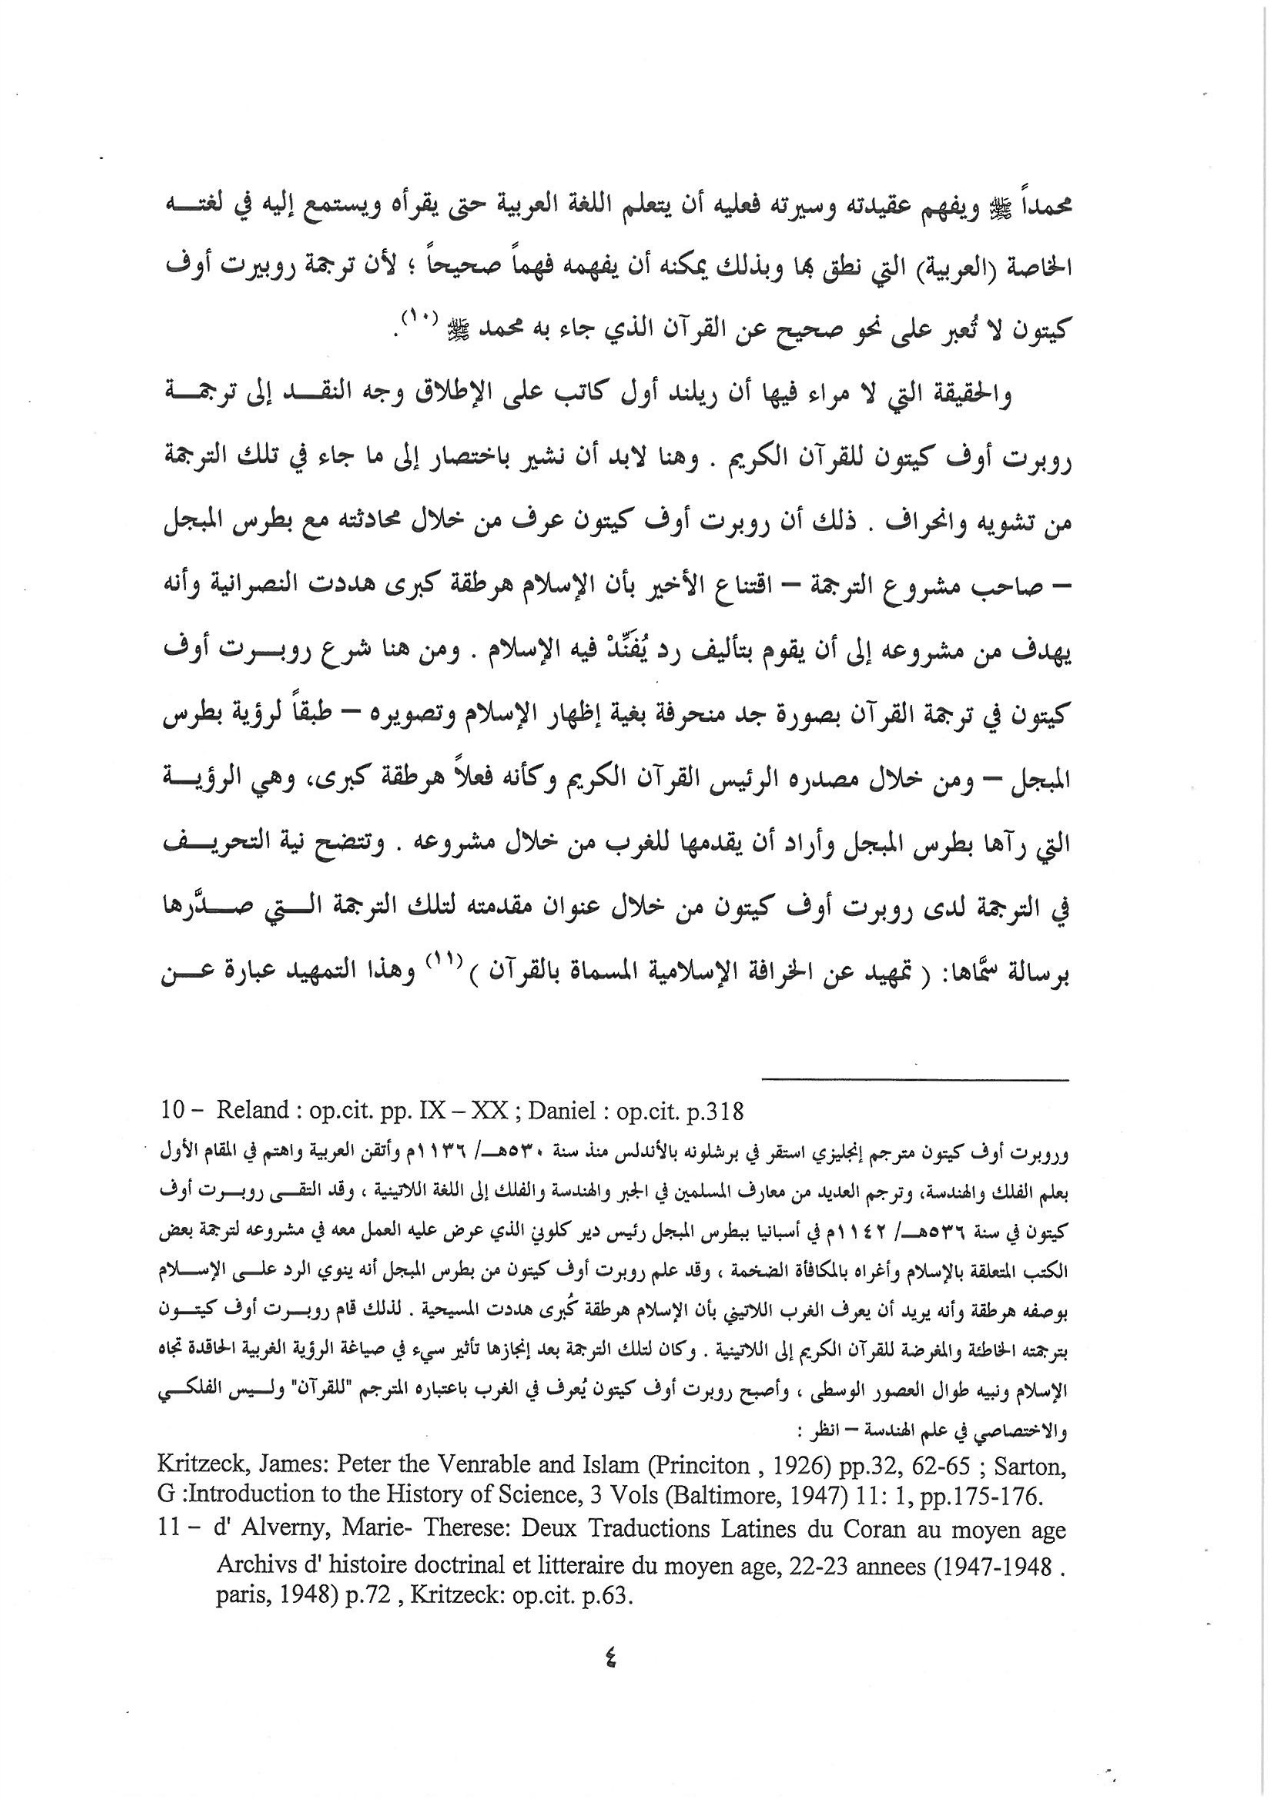 محمداً ﷺ ويفهم عقيدته وسيرته فعليه أن يتعلم اللغة العربية حتى يقرأه ويستمع إليه في لغتـــه
الخاصة (العربية) التي نطق بها وبذلك يمكنه أن يفهمه فهماً صحيحاً ؛ لأن ترجمة روبيرت أوف
كيتون لا تُعبر على نحو صحيح عن القرآن الذي جاء به محمد ﷺ (١٠).
والحقيقة التي لا مراء فيها أن ريلند أول كاتب على الإطلاق وجه النقـــد إلى ترجمـــة
روبرت أوف كيتون للقرآن الكريم . وهنا لابد أن نشير باختصار إلى ما جاء في تلك الترجمة
من تشويه وانحراف . ذلك أن روبرت أوف كيتون عرف من خلال محادثته مع بطرس المبجل
– صاحب مشروع الترجمة – اقتناع الأخير بأن الإسلام هرطقة كبرى هددت النصرانية وأنه
يهدف من مشروعه إلى أن يقوم بتأليف رد يُفَنِّدْ فيه الإسلام . ومن هنا شرع روبـــرت أوف
كيتون في ترجمة القرآن بصورة جد منحرفة بغية إظهار الإسلام وتصويره – طبقاً لرؤية بطرس
المبجل – ومن خلال مصدره الرئيس القرآن الكريم وكأنه فعلاً هرطقة كبرى، وهي الرؤيـــة
التي رآها بطرس المبجل وأراد أن يقدمها للغرب من خلال مشروعه . وتتضح نية التحريـــف
في الترجمة لدى روبرت أوف كيتون من خلال عنوان مقدمته لتلك الترجمة الـــتي صـــدَّرها
برسالة سمَّاها: ( تمهيد عن الخرافة الإسلامية المسماة بالقرآن )(١١) وهذا التمهيد عبارة عـــن
10 – Reland : op.cit. pp. IX – XX ; Daniel : op.cit. p.318
وروبرت أوف كيتون مترجم إنجليزي استقر في برشلونه بالأندلس منذ سنة ٥٣٠هـــ/ ١١٣٦م وأتقن العربية واهتم في المقام الأول
بعلم الفلك والهندسة، وترجم العديد من معارف المسلمين في الجبر والهندسة والفلك إلى اللغة اللاتينية ، وقد التقـــى روبـــرت أوف
كيتون في سنة ٥٣٦هـــ/ ١١٤٢م في أسبانيا ببطرس المبجل رئيس دير كلوني الذي عرض عليه العمل معه في مشروعه لترجمة بعض
الكتب المتعلقة بالإسلام وأغراه بالمكافأة الضخمة ، وقد علم روبرت أوف كيتون من بطرس المبجل أنه ينوي الرد علـــى الإســـلام
بوصفه هرطقة وأنه يريد أن يعرف الغرب اللاتيني بأن الإسلام هرطقة كُبرى هددت المسيحية . لذلك قام روبـــرت أوف كيتـــون
بترجمته الخاطئة والمغرضة للقرآن الكريم إلى اللاتينية . وكان لتلك الترجمة بعد إنجازها تأثير سيء في صياغة الرؤية الغربية الحاقدة تجاه
الإسلام ونبيه طوال العصور الوسطى ، وأصبح روبرت أوف كيتون يُعرف في الغرب باعتباره المترجم "للقرآن" ولـــيس الفلكـــي
والاختصاصي في علم الهندسة – انظر :
Kritzeck, James: Peter the Venrable and Islam (Princiton , 1926) pp.32, 62-65 ; Sarton,
G :Introduction to the History of Science, 3 Vols (Baltimore, 1947) 11: 1, pp.175-176.
11 – d' Alverny, Marie- Therese: Deux Traductions Latines du Coran au moyen age
Archivs d' histoire doctrinal et litteraire du moyen age, 22-23 annees (1947-1948 .
paris, 1948) p.72 , Kritzeck: op.cit. p.63.
٤